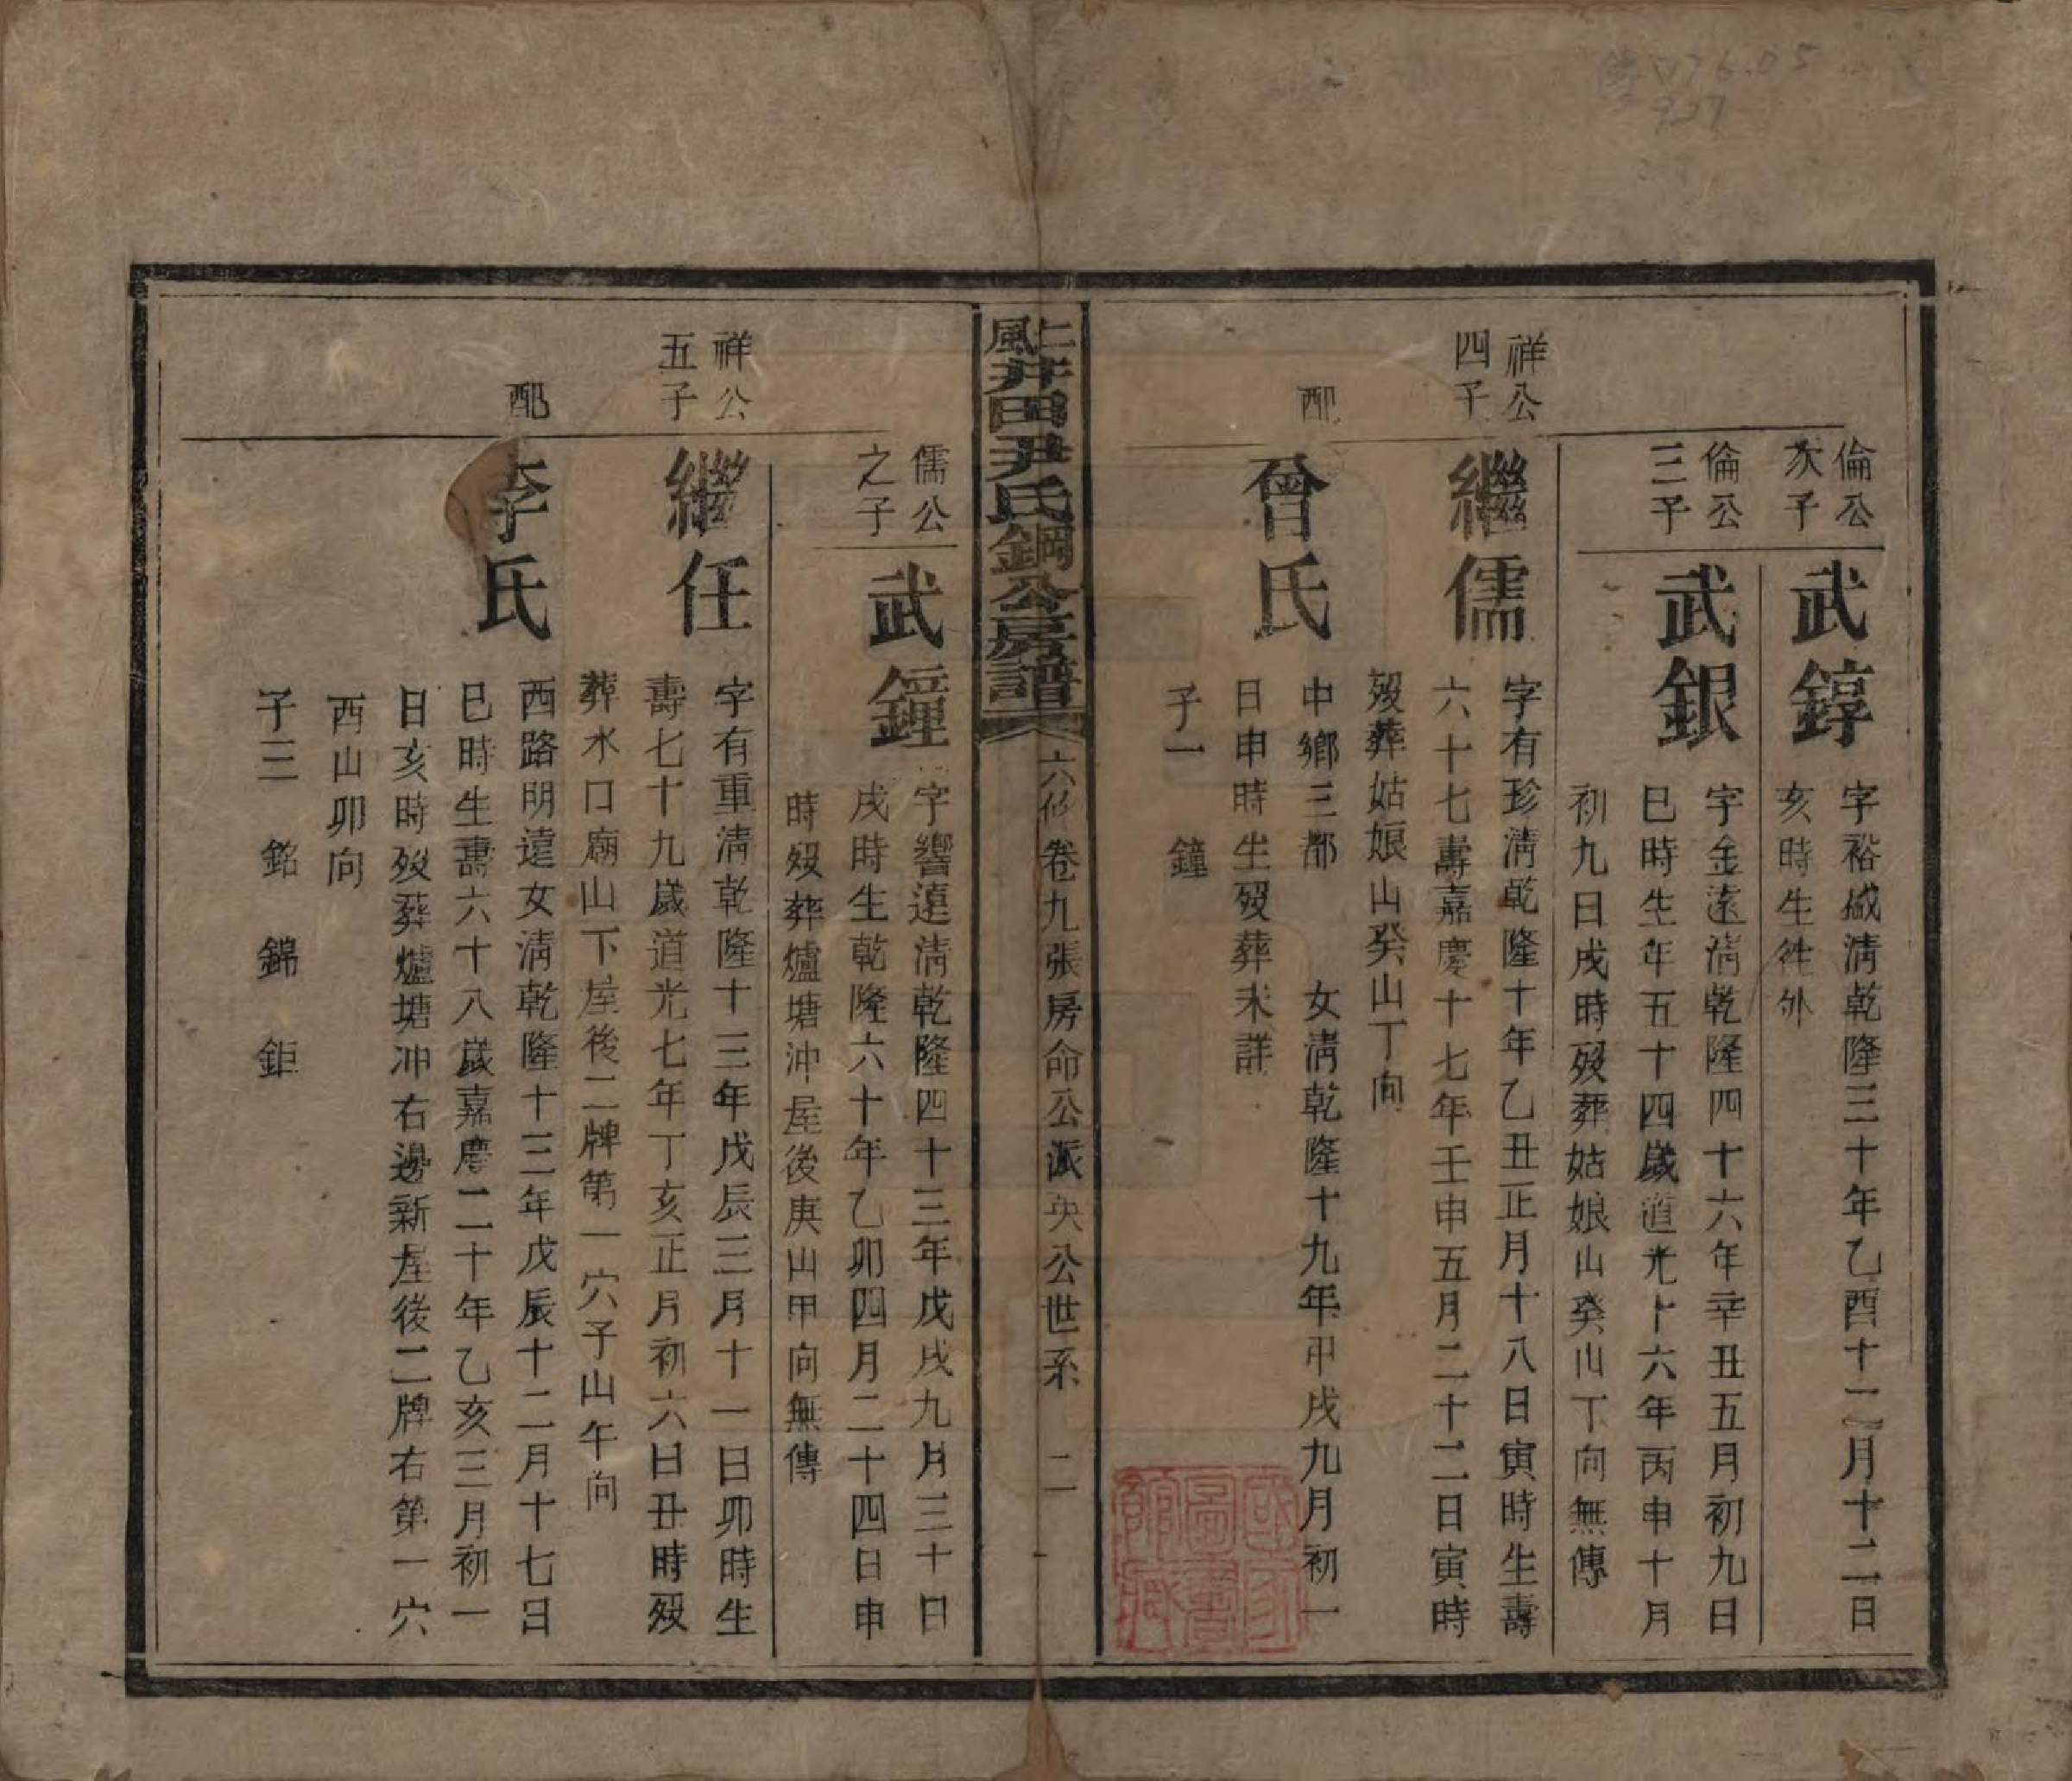 倫公
次子
武錞
字裕盛清乾隆三十年乙酉十二月十二日
亥時生徃外
倫公
三子
武銀
字金遠清乾隆四十六年辛丑五月初九日
巳時生年五十四歲道光十六年丙申十月
初九日戌時歿葬姑娘山癸山丁向無傳
祥公
四子
繼儒
字有珍清乾隆十年乙丑正月十八日寅時生壽
六十七壽嘉慶十七年壬申五月二十二日寅時
歿葬姑娘山癸山丁向
配
曾氏
中鄉三都 女清乾隆十九年甲戌九月初一
日申時生歿葬未詳
子一 鐘
上井田尹氏鋼公房譜
風
六修 卷九張房命公派央公世系 二
儒公
之子
武鐘
字響遠清乾隆四十三年戊戌九月三十日
戌時生乾隆六十年乙卯四月二十四日申
時歿葬爐塘沖屋後庚山甲向無傳
祥公
五子
繼任
字有重清乾隆十三年戊辰三月十一日卯時生
壽七十九歲道光七年丁亥正月初六日丑時歿
葬水口廟山下屋後二牌第一穴子山午向
配
李氏
西路明遠女清乾隆十三年戊辰十二月十七日
巳時生壽六十八歲嘉慶二十年乙亥三月初一
日亥時歿葬爐塘沖右邊新屋後二牌右第一穴
酉山卯向
子三 銘 錦 鉅
國家
圖書
館藏